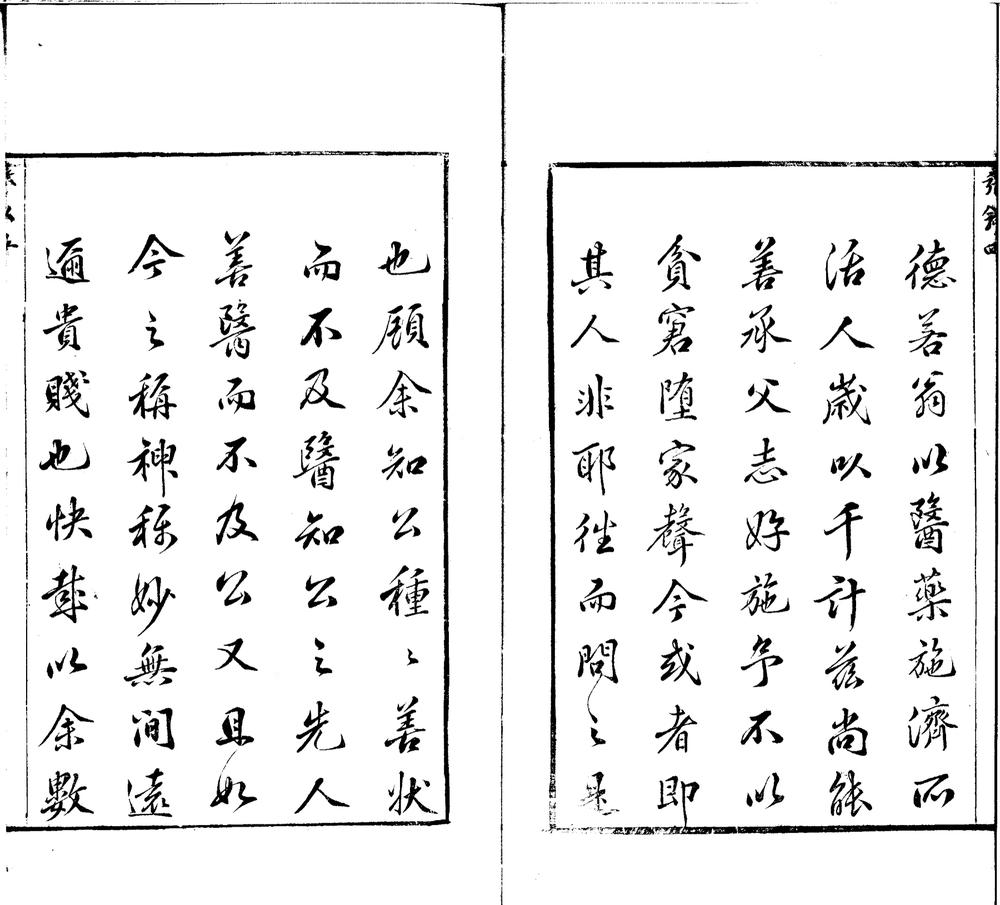 德若翁以醫藥施濟所
活人歲以千計茲尚能
善承父志好施予不以
貧窘墮家聲今或者即
其人非耶徃而問之是
也顧余知公種〻善狀
而不及醫知公之先人
善醫而不及公又且如
今之稱神稱妙無間遠
邇貴賤也快哉以余數